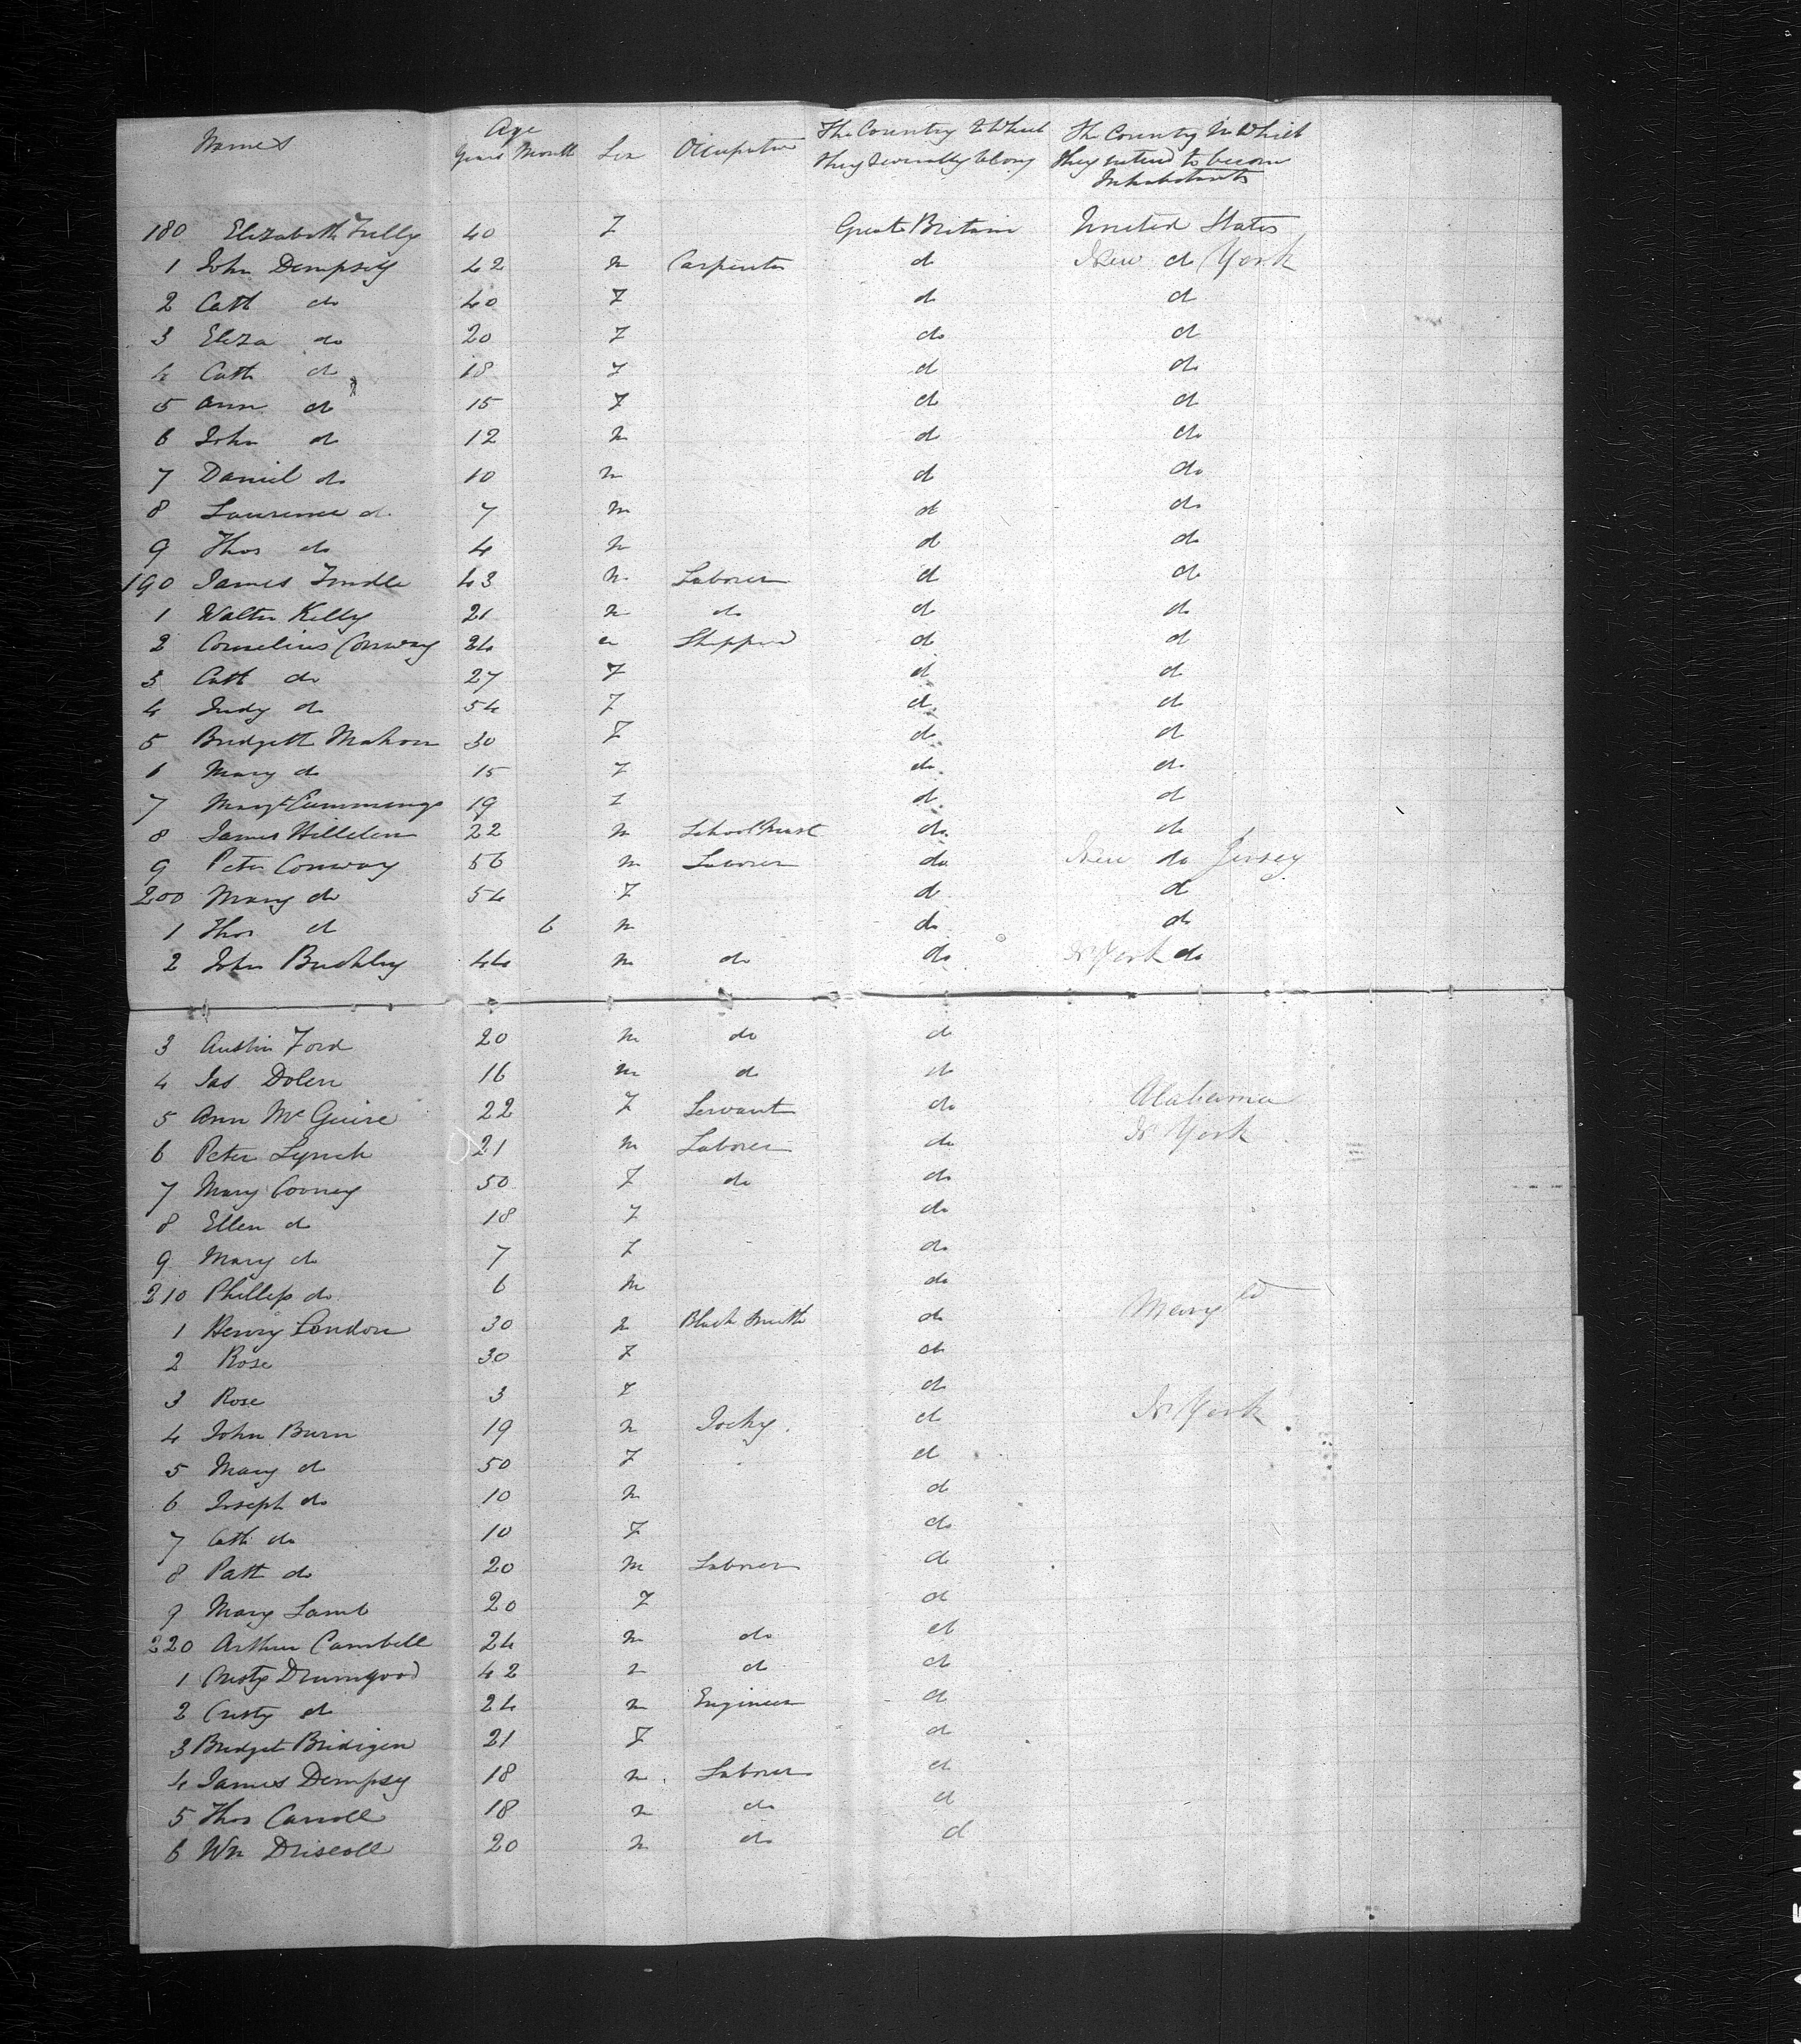 Names Age Years Month Sex Occupation The Country to Which they Severally belong The Country in Which they intend to become Inhabitants
180 Elizabeth Tully 40 F Great Britain United States
1 John Dempsey 42 m Carpenter d New do York
2 Cath do 40 F d d
3 Eliza do 20 F do d
4 Cath d 18 F d do
5 Ann do 15 F d d
6 John do 12 m d do
7 Daniel do 10 m d do
8 Laurence d 7 m d do
9 Thos do 4 m d do
190 James 43 m Laborer d do
1 Walter Kelly 21 m do d do
2 Cornelius Conway 24 m Shepperd d d
3 Cath do 27 F d d
4 Judy do 54 F d d
5 Bridgett Mahon 30 F do d
6 Mary do 15 F do do
7 Margt Cummings 19 F d d
8 James 22 m School Mast do do
9 Peter Conway 56 m Laborer do New do Jersey
200 Mary do 54 F d d
1 Thos d 6 m do do
2 John Buckley 44 m do do N York do
3 Austin Ford 20 m do d
4 Jas Dolen 16 m d do
5 Ann McGuire 22 F Servant do Alabama
6 Peter Lynch 21 m Laborer do N York
7 Mary Cooney 50 F do do
8 Ellen d 18 F do
9 Mary do 7 F do
210 Phillip do 6 m do
1 Henry London 30 m Black Smith do Maryld
2 Rose 30 F do
3 Rose 3 F d
4 John Burn 19 m Jocky. d N York
5 Mary d 50 F d
6 Joseph do 10 m d
7 Cath do 10 F do
8 Patt do 20 m Laborer d
9 Mary Lamb 20 F d
220 Arthur Cambell 24 m do d
1 Cristy Drumgood 42 m d d
2 Cristy do 24 m Engineer d
3 Bridget Bridigen 21 F d
4 James Dempsy 18 m Laborer d
5 Thos Carroll 18 m do d
6 Wm Driscoll 20 m do d